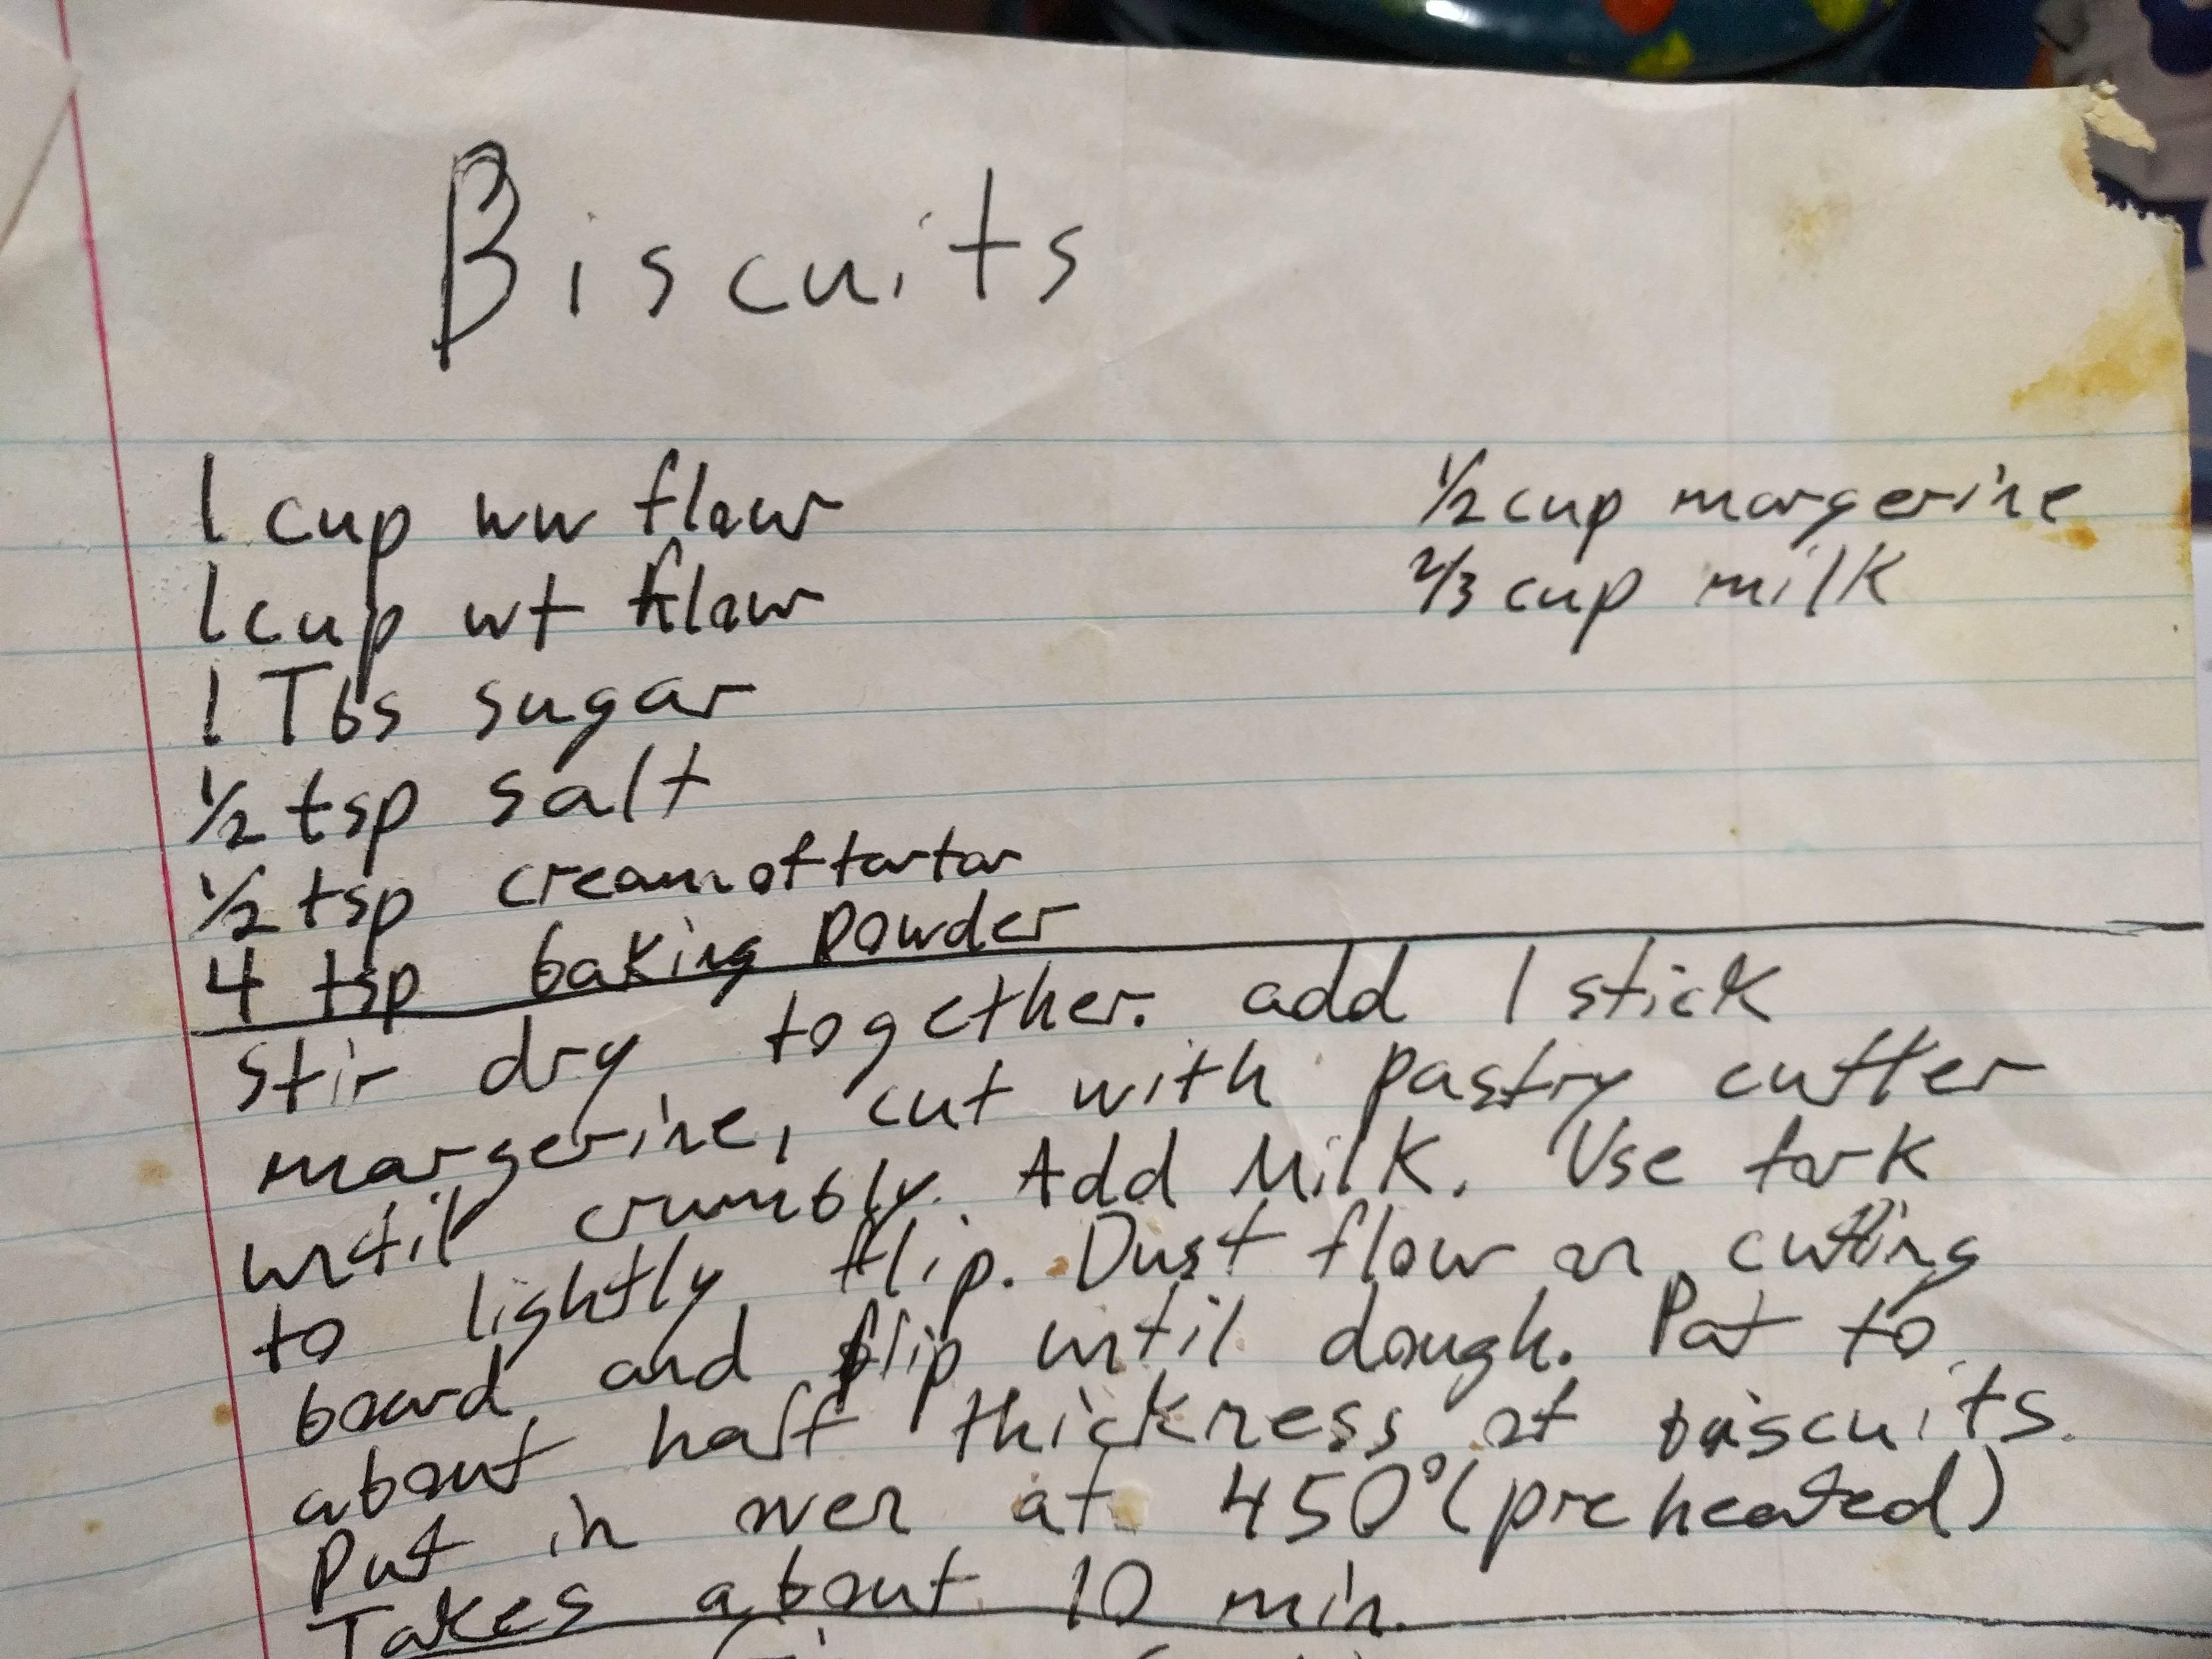 Biscuits
1 cup ww flour
1 cup wt flour
1 Tbs sugar
1/2 tsp salt
1/2 tsp cream of tartar
4 tsp baking powder
1/2 cup margerine
2/3 cup milk
Stir dry together. add 1 stick
margerine, cut with pastry cutter
until crumbly. Add Milk. Use fork
to lightly flip. Dust flour on cutting
board and flip until dough. Pat to
about half thickness of biscuits.
Put in oven at 450° (preheated)
Takes about 10 min.